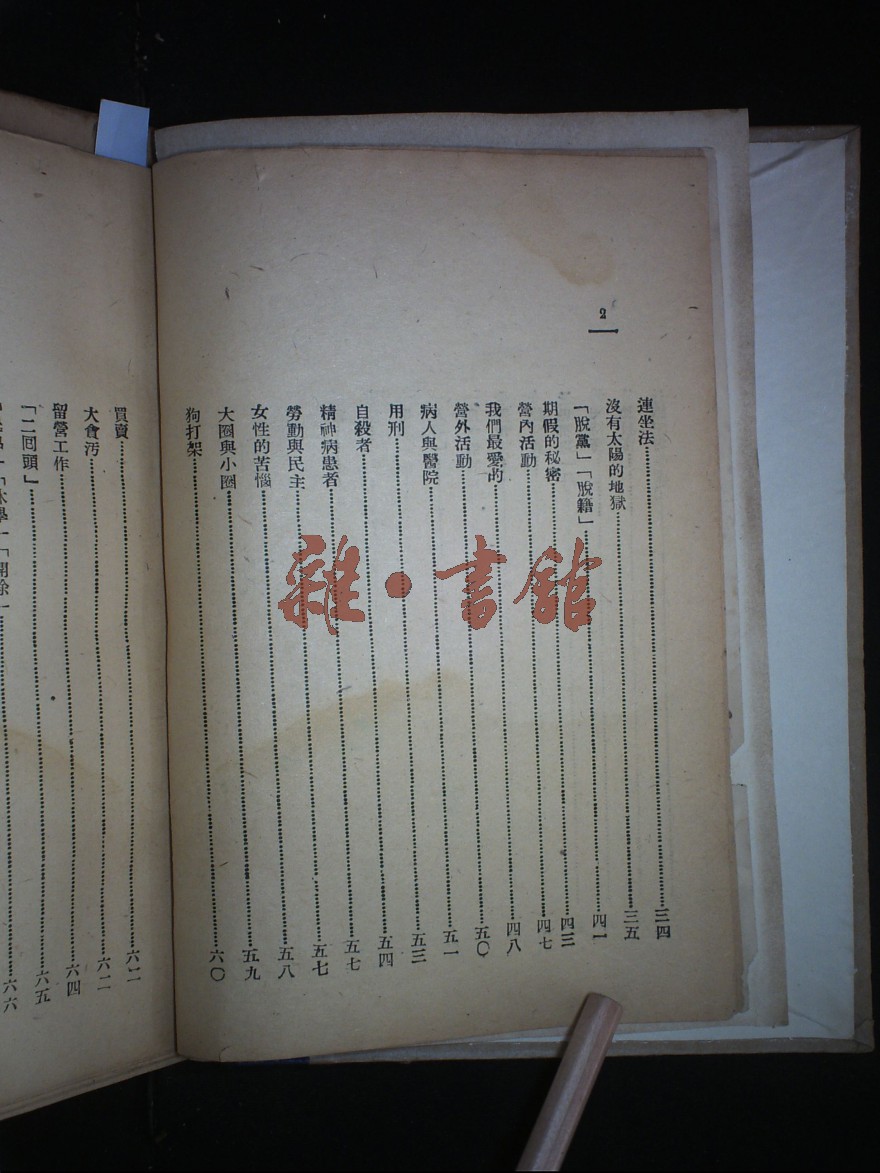 2
連坐法……三四
沒有太陽的地獄……三五
「脫黨」「脫籍」……四一
期假的秘密……四三
營內活動……四七
我們最愛的……四八
營外活動……五〇
病人與醫院……五一
用刑……五三
自殺者……五四
精神病患者……五七
勞動與民主……五七
女性的苦惱……五八
大圈與小圈……五九
狗打架……六〇
買賣……六二
大貪污……六二
留營工作……六四
「二回頭」……六五
「休學」「開除」……六六
雜·書館